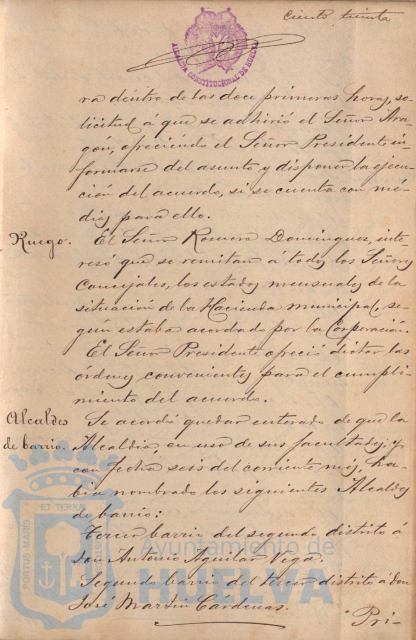 Ciento treinta
ALCALDIA CONSTITUCIONAL DE HUELVA
ra dentro de las doce primeras horas, so-
licitud á que se adhirió el Señor Ara-
gón, ofreciendo el Señor Presidente in-
formarse del asunto y disponer la ejecu-
ción del acuerdo, si se cuenta con mé-
dios para ello.
Ruego. El Señor Romero Dominguez, inte-
resó que se remitan á todos los Señores
Concejales, los estados mensuales de la
situación de la Hacienda municipal, se-
gún estaba acordado por la Corporación.
El Señor Presidente ofreció dictar las
órdenes convenientes para el cumpli-
miento del acuerdo.
Alcaldes Se acordó quedar enterado de que la
de barrio. Alcaldia en uso de sus facultades, y
con fecha seis del corriente mes, ha-
bía nombrado los siguientes Alcaldes
de barrio:
Tercer barrio del segundo distrito á
don Antonio Aguilar Vega.
Segundo barrio del tercer distrito á don
José Martin Cárdenas.
Pri-
PORTUS MARIS ET TERRAE
Ayuntamiento de
HUELVA